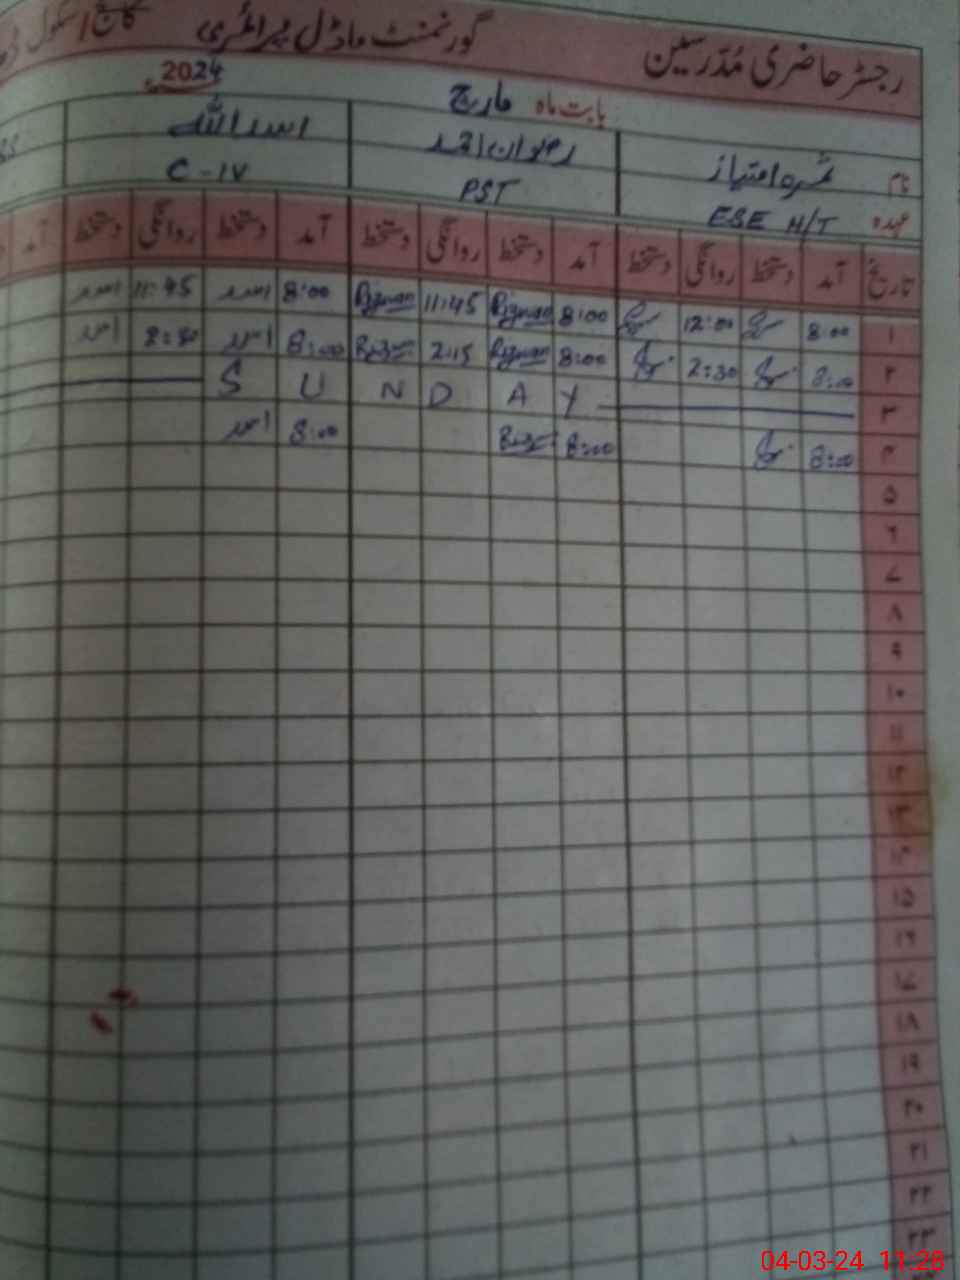 رجسٹر حاضری مُدّرسین گورنمنٹ ماڈل پرائمری سکول
بابت ماہ مارچ 2024ء
نام امتیاز رضوان احمد اسد اللہ
عہدہ ESE H/T PST C-IV
تاریخ آمد دستخط روانگی دستخط آمد دستخط روانگی دستخط آمد دستخط روانگی دستخط آمد
۱ 8:00 12:00 8:00 Rizwan 11:45 Rizwan 8:00 اسد 11:45 اسد
۲ 8:00 2:30 8:00 Rizwan 2:15 Rizwan 8:00 اسد 2:30 اسد
۳ S U N D A Y
۴ 8:00 8:00 Rizwan 8:00 اسد
۵
۶
۷
۸
۹
۱۰
۱۱
۱۲
۱۳
۱۴
۱۵
۱۶
۱۷
۱۸
۱۹
۲۰
۲۱
۲۲
۲۳
04-03-24 11:28